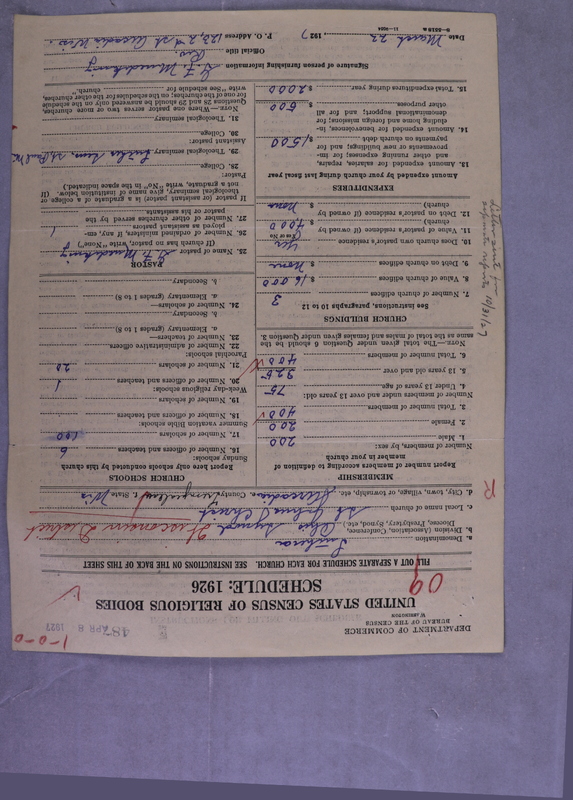 1-0-0
APR 8 1927
DEPARTMENT OF COMMERCE
BUREAU OF THE CENSUS
WASHINGTON
UNITED STATES CENSUS OF RELIGIOUS BODIES
SCHEDULE: 1926
FILL OUT A SEPARATE SCHEDULE FOR EACH CHURCH. SEE INSTRUCTIONS ON THE BACK OF THIS SHEET
a. Denomination Lutheran
b. Division (Association, Conference, Diocese, Presbytery, Synod, etc.) Ohio Synod Wisconsin District
c. Local name of church
d. City, town, village, or township, etc. Arcadia County, State, Wis
MEMBERSHIP
Report number of members according to definition of
member in your church
Number of members, by sex:
1. Male 200
2. Female 200
3. Total number of members 400
Number of members under and over 13 years old:
4. Under 13 years of age 75
5. 13 years old and over 325
6. Total number of members 400
NOTE.—The total given under Question 6 should be the
same as the total of males and females given under Question 3.
CHURCH BUILDINGS
See instructions, paragraphs 10 to 12
7. Number of church edifices 3
8. Value of church edifices $ 16,000
9. Debt on church edifices $ None
10. Does church own pastor's residence Yes
(Yes or No)
11. Value of pastor's residence (if owned by
church) $ 4,000
12. Debt on pastor's residence (if owned by
church) $ None
EXPENDITURES
Amount expended by your church during last fiscal year
13. Amount expended for salaries, repairs,
and other running expenses; for im-
provements or new buildings; and for
payments on church debt $ 1500
14. Amount expended for benevolences, in-
cluding home and foreign missions; for
denominational support; and for all
other purposes $ 500
15. Total expenditures during year $ 2000
CHURCH SCHOOLS
Report here only schools conducted by this church
Sunday schools:
16. Number of officers and teachers 6
17. Number of scholars 100
Summer vacation Bible schools:
18. Number of officers and teachers
19. Number of scholars
Week-day religious schools:
20. Number of officers and teachers 1
21. Number of scholars 20
Parochial schools:
22. Number of administrative officers
23. Number of teachers—
a. Elementary (grades 1 to 8)
b. Secondary
24. Number of scholars—
a. Elementary (grades 1 to 8)
b. Secondary
PASTOR
25. Name of pastor
(If church has no pastor, write "None")
26. Number of ordained ministers, if any, em-
ployed as assistant pastors
27. Number of other churches served by the
pastor or his assistants 1
If pastor (or assistant pastor) is a graduate of a college or
theological seminary, give name of institution below. (If
not a graduate, write "No" in the space indicated.)
Pastor:
28. College
29. Theological seminary Luther Sem. St. Paul M.
Assistant pastor:
30. College
31. Theological seminary
NOTE.—Where one pastor serves two or more churches,
Questions 28 and 29 should be answered only on the schedule
for one of the churches; on the schedules for the other churches,
write "See schedule for church."
Signature of person furnishing information
Official title
Date March 22, 1927 P. O. Address Arcadia Wis.